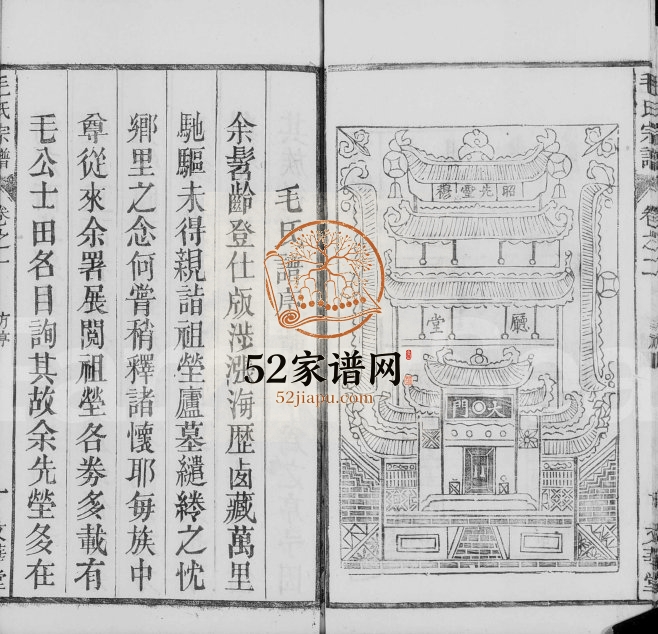 毛氏宗譜
卷之二
昭先靈穆
廳堂
大門
毛氏譜序
余髫齡登仕版涉瀛海歷鹵藏萬里
馳驅未得親詣祖塋廬墓繾綣之忱
鄉里之念何嘗稍釋諸懷耶每族中
尊從來余署展閱祖塋各券多載有
毛公士田名目詢其故余先塋多在
毛氏宗譜
卷之一
52家谱网
52jiapu.com